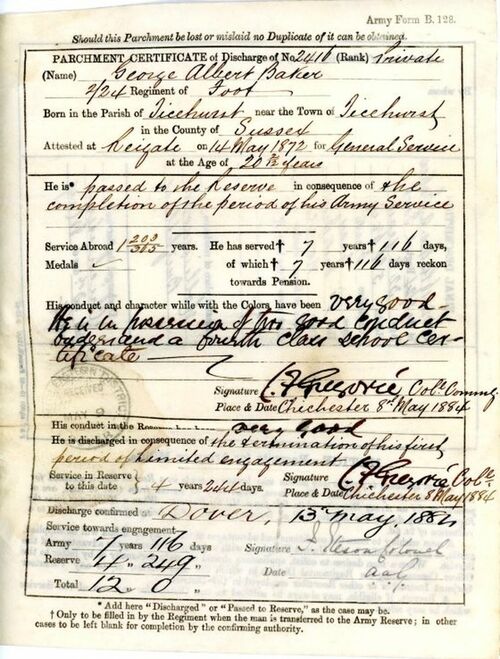 Army Form B. 128.
Should this Parchment be lost or mislaid no Duplicate of it can be obtained.
PARCHMENT CERTIFICATE of Discharge of No. 2416 (Rank) Private
(Name) George Albert Baker
2/24 Regiment of Foot
Born in the Parish of Ticehurst near the Town of Ticehurst
in the County of Sussex
Attested at Reigate on 14 May 1872 for General Service
at the Age of 20 years
He is* passed to the Reserve in consequence of the
completion of the period of his Army Service
Service Abroad 1 203/365 years. He has served† 7 years† 116 days,
Medals of which † 7 years† 116 days reckon
towards Pension.
His conduct and character while with the Colors have been very good
He is in possession of two good conduct
badges and a fourth class school cer-
tificate
Signature Colº. Commg.
Place & Date Chichester 8th May 1884
His conduct in the Reserve has been very good
He is discharged in consequence of the termination of his first
period of limited engagement
Service in Reserve to this date 4 years 244 days.
Signature Colº.
Place & Date Chichester 8 May 1884
Discharge confirmed at Dover, 13th May, 1884
Service towards engagement—
Army 7 years 116 days
Reserve 4 " 249 "
Total 12 " 0 "
Signature Colonel
Date A.A.G.
* Add here "Discharged" or "Passed to Reserve," as the case may be.
† Only to be filled in by the Regiment when the man is transferred to the Army Reserve; in other
cases to be left blank for completion by the confirming authority.